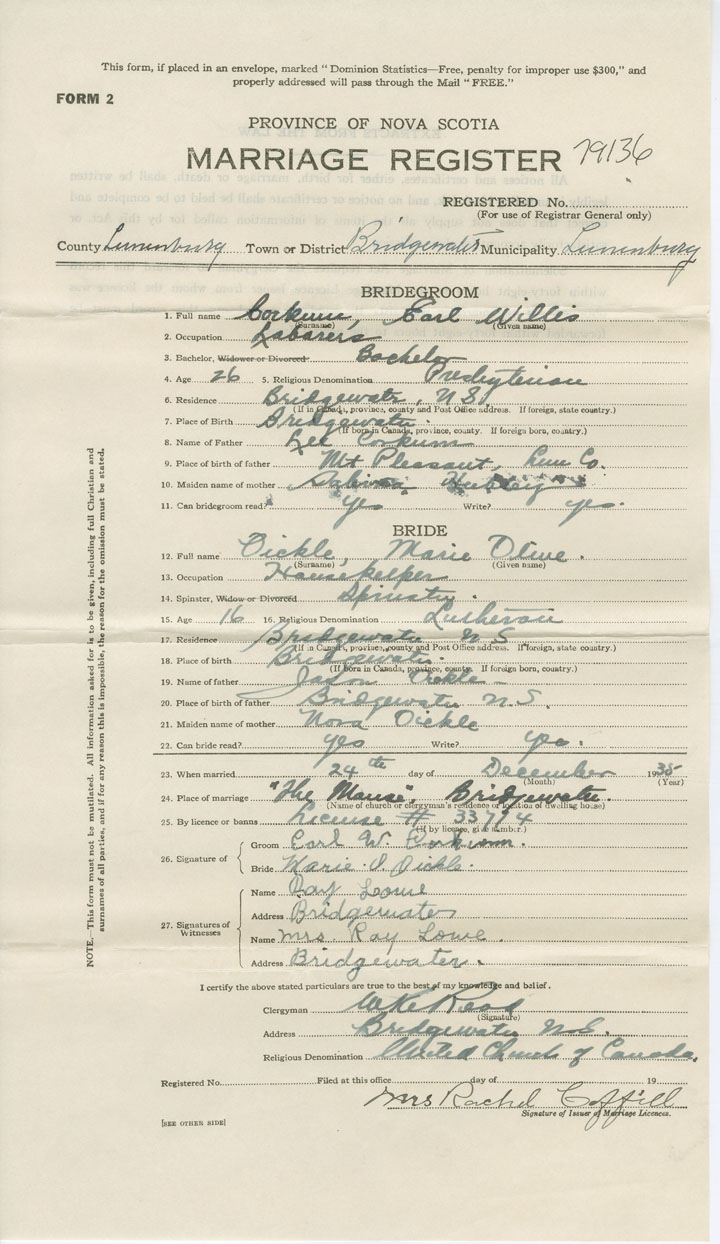 This form, if placed in an envelope, marked "Dominion Statistics—Free, penalty for improper use $300," and
properly addressed will pass through the Mail "FREE."
FORM 2
PROVINCE OF NOVA SCOTIA
MARRIAGE REGISTER 79136
REGISTERED No.
(For use of Registrar General only)
County Lunenburg Town or District Bridgewater Municipality Lunenburg
BRIDEGROOM
1. Full name Corkum, Earl Willis
(Surname) (Given name)
2. Occupation Labarers
3. Bachelor, Widower or Divorced Bachelor
4. Age 26 5. Religious Denomination Presbyterian
6. Residence Bridgewater, N.S.
(If in Canada, province, county and Post Office address. If foreign, state country.)
7. Place of Birth Bridgewater.
(If born in Canada, province, county. If foreign born, country.)
8. Name of Father Lee Corkum
9. Place of birth of father Mt Pleasant, Lun Co.
10. Maiden name of mother
11. Can bridegroom read? Yes Write? yes.
BRIDE
12. Full name Dickle, Marie Olive.
(Surname) (Given name)
13. Occupation Housekelper
14. Spinster, Widow or Divorced Spinster.
15. Age 16 16. Religious Denomination Lutheran
17. Residence Bridgewater N.S
(If in Canada, province, county and Post Office address. If foreign, state country.)
18. Place of birth Bridgewater.
(If born in Canada, province, county. If foreign born, country.)
19. Name of father Jason Dickle
20. Place of birth of father Bridgewater N.S.
21. Maiden name of mother Nova Dickle
22. Can bride read? yes Write? yes.
23. When married 24th day of December 1935
(Month) (Year)
24. Place of marriage "The Manse", Bridgewater.
(Name of church or clergyman's residence or location of dwelling house)
25. By licence or banns License # 33794
(If by licence, give number.)
26. Signature of
Groom Earl W. Corkum.
Bride Marie O Dickle.
27. Signatures of Witnesses
Name Ray Lowe
Address Bridgewater
Name Mrs. Ray Lowe.
Address Bridgewater.
I certify the above stated particulars are true to the best of my knowledge and belief.
Clergyman Read
(Signature)
Address Bridgewater N.S.
Religious Denomination United Church of Canada.
Registered No. Filed at this office day of 19
Mrs Rachel Coffill
Signature of Issuer of Marriage Licences.
[SEE OTHER SIDE]
NOTE.—This form must not be mutilated. All information asked for is to be given, including full Christian and
surnames of all parties, and if for any reason this is impossible, the reason for the omission must be stated.